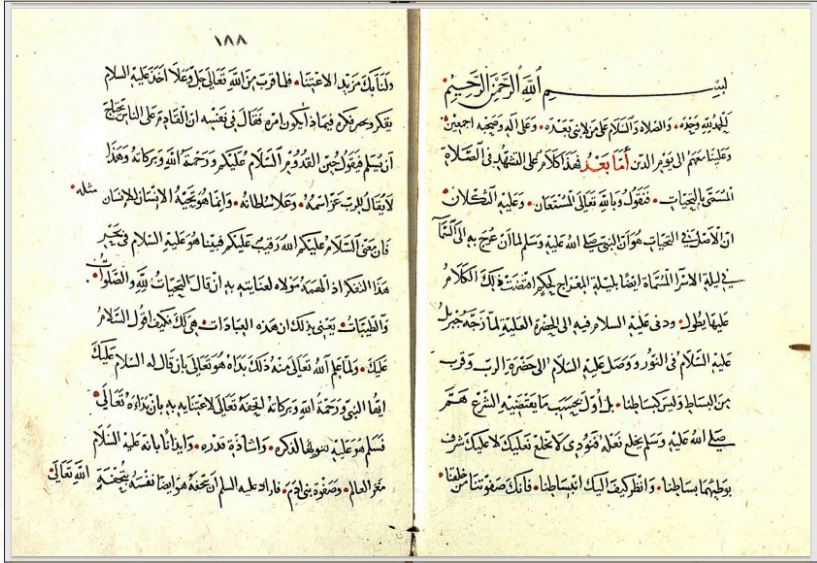 بسم الله الرحمن الرحيم
الحمد لله وحده والصلاة والسلام على من لا نبي بعده وعلى آله وصحبه اجمعين
وعلينا معهم الى يوم الدين أما بعد فهذا كلام على التشهد في الصلاة
المسمى بالتحيات فنقول وبالله تعالى المستعان وعليه التكلان
ان الاصل في التحيات هو أن النبي صلى الله عليه وسلم لما ان عرج به الى السما
في ليلة الاسرا المسماة ايضا بليلة المعراج لحكم اقتضت ذلك الكلام
عليها يطول ودنى عليه السلام فيه الى الحضرة العلية لما زجه جبريل
عليه السلام في النور ووصل عليه السلام الى حضرة الرب وقرب
من البساط وليس كبساطنا بل اول بحسب ما يقتضيه الشرع هم
صلى الله عليه وسلم بخلع نعله فنودى لا تخلع نعليك لا عليك شرف
بوطيهما بساطنا وانظر كيف اليك انبساطنا فانك صفوتنا من خلقنا
١٨٨
ولنا بك مزيد الاعتنا فلما قرب من الله تعالى جل وعلا اخذ عليه السلام
يفكر وبحر فكره فيما ذا يكون امره فقال في نفسه ان القادم على الناس يحتاج
أن يسلم فيقول حين القدوم السلام عليكم ورحمة الله وبركاته وهذا
لا يقال للرب عز اسمه وعلا سلطانه وانما هو تحية الانسان للانسان مثله
فان معنى السلام عليكم الله رقيب عليكم فبينا هو عليه السلام في تحير
هذا التفكر اذ الهمه مولاه لعنايته به أن قال التحيات لله والصلوات
والطيبات يعني بذلك ان هذه العبادات هي لك فكيف اقول السلام
عليك ولما علم الله تعالى منه ذلك بداه هو تعالى بان قال له السلام عليك
ايها النبي ورحمة الله وبركاته تحفة تعالى لاعتنايه به بان بداءه تعالى
فسلم هو عليه تنويها لذكره واشاذة قدره وايذانا بانه عليه السلام
مفخر العالم وصفوة بني ادم فاراد عليه السلم أن يتحفه هو ايضا نفسه بتحفة الله تعالى